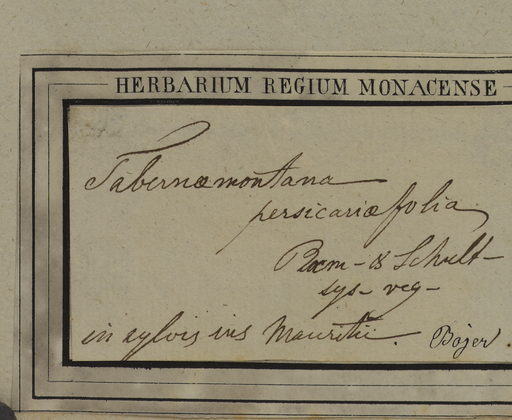 HERBARIUM REGIUM MONACENSE
Tabernæmontana
persicariæfolia
Rœm - & Schult -
sys - veg -
in sylvis ins Mauritii. Bojer